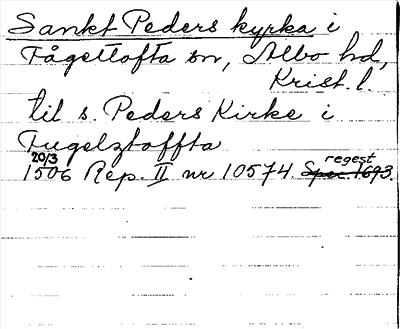 Sankt Peders kyrka i
Fågeltofta sn, Albo hd,
Krist. l.
til s. Peders Kirke i
Fugelztoffta
20/3 1506 Rep. II nr 10574. regest Spec. 1693.